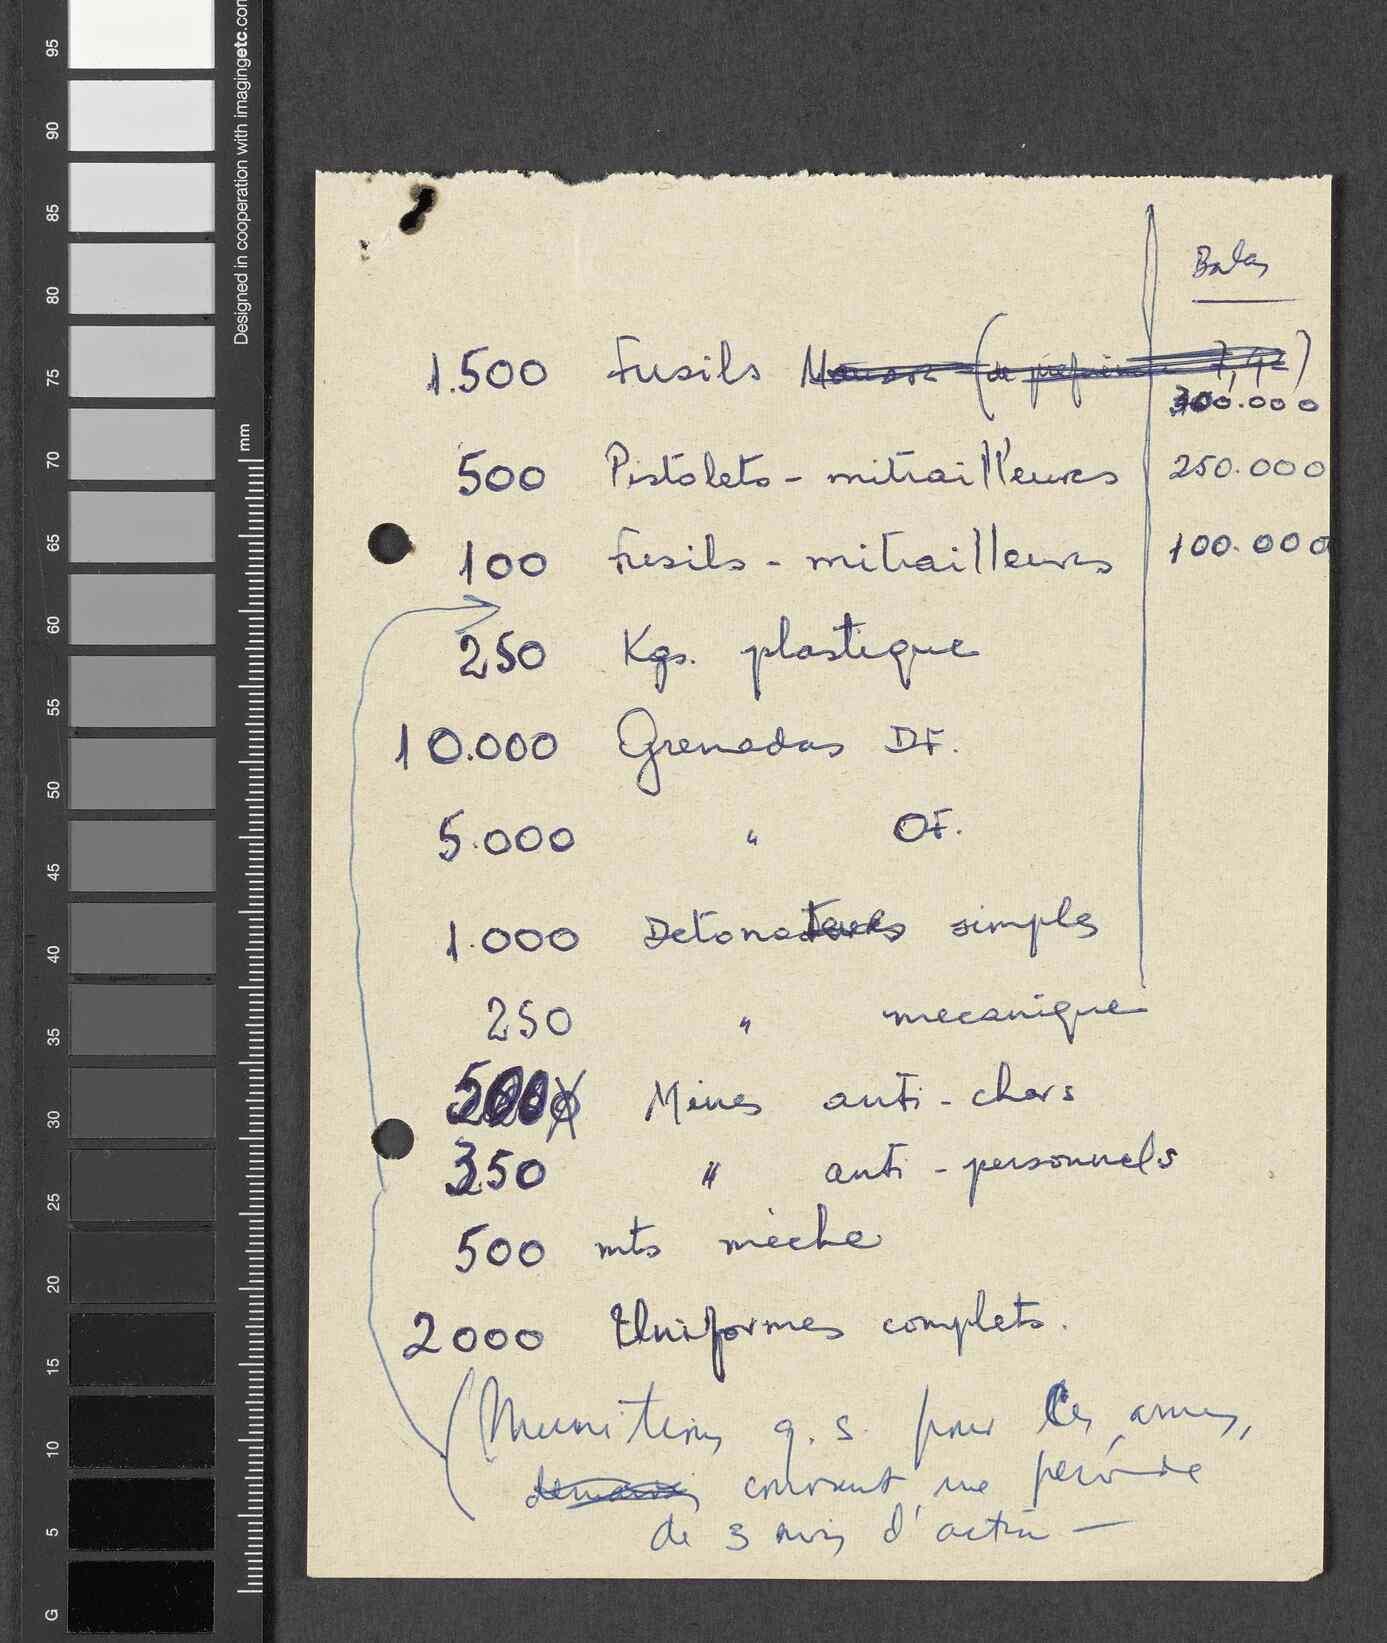 Designed in cooperation with imagingetc.com
mm
95
90
85
80
75
70
65
60
55
50
45
40
35
30
25
20
15
10
5
G
Balas
1.500 Fusils Mauser (de préférence 7,92)
300.000
500 Pistolets - mitrailleurs 250.000
100 Fusils - mitrailleurs 100.000
250 Kgs. plastique
10.000 Grenadas DF.
5.000 " OF.
1.000 Detonateurs simples
250 " mecanique
500 Mines anti - chars
350 " anti - personnels
500 mts mèche
2000 Uniformes complets.
(Munitions q.s. pour les armes,
couvrant une période
de 3 mois d'action —